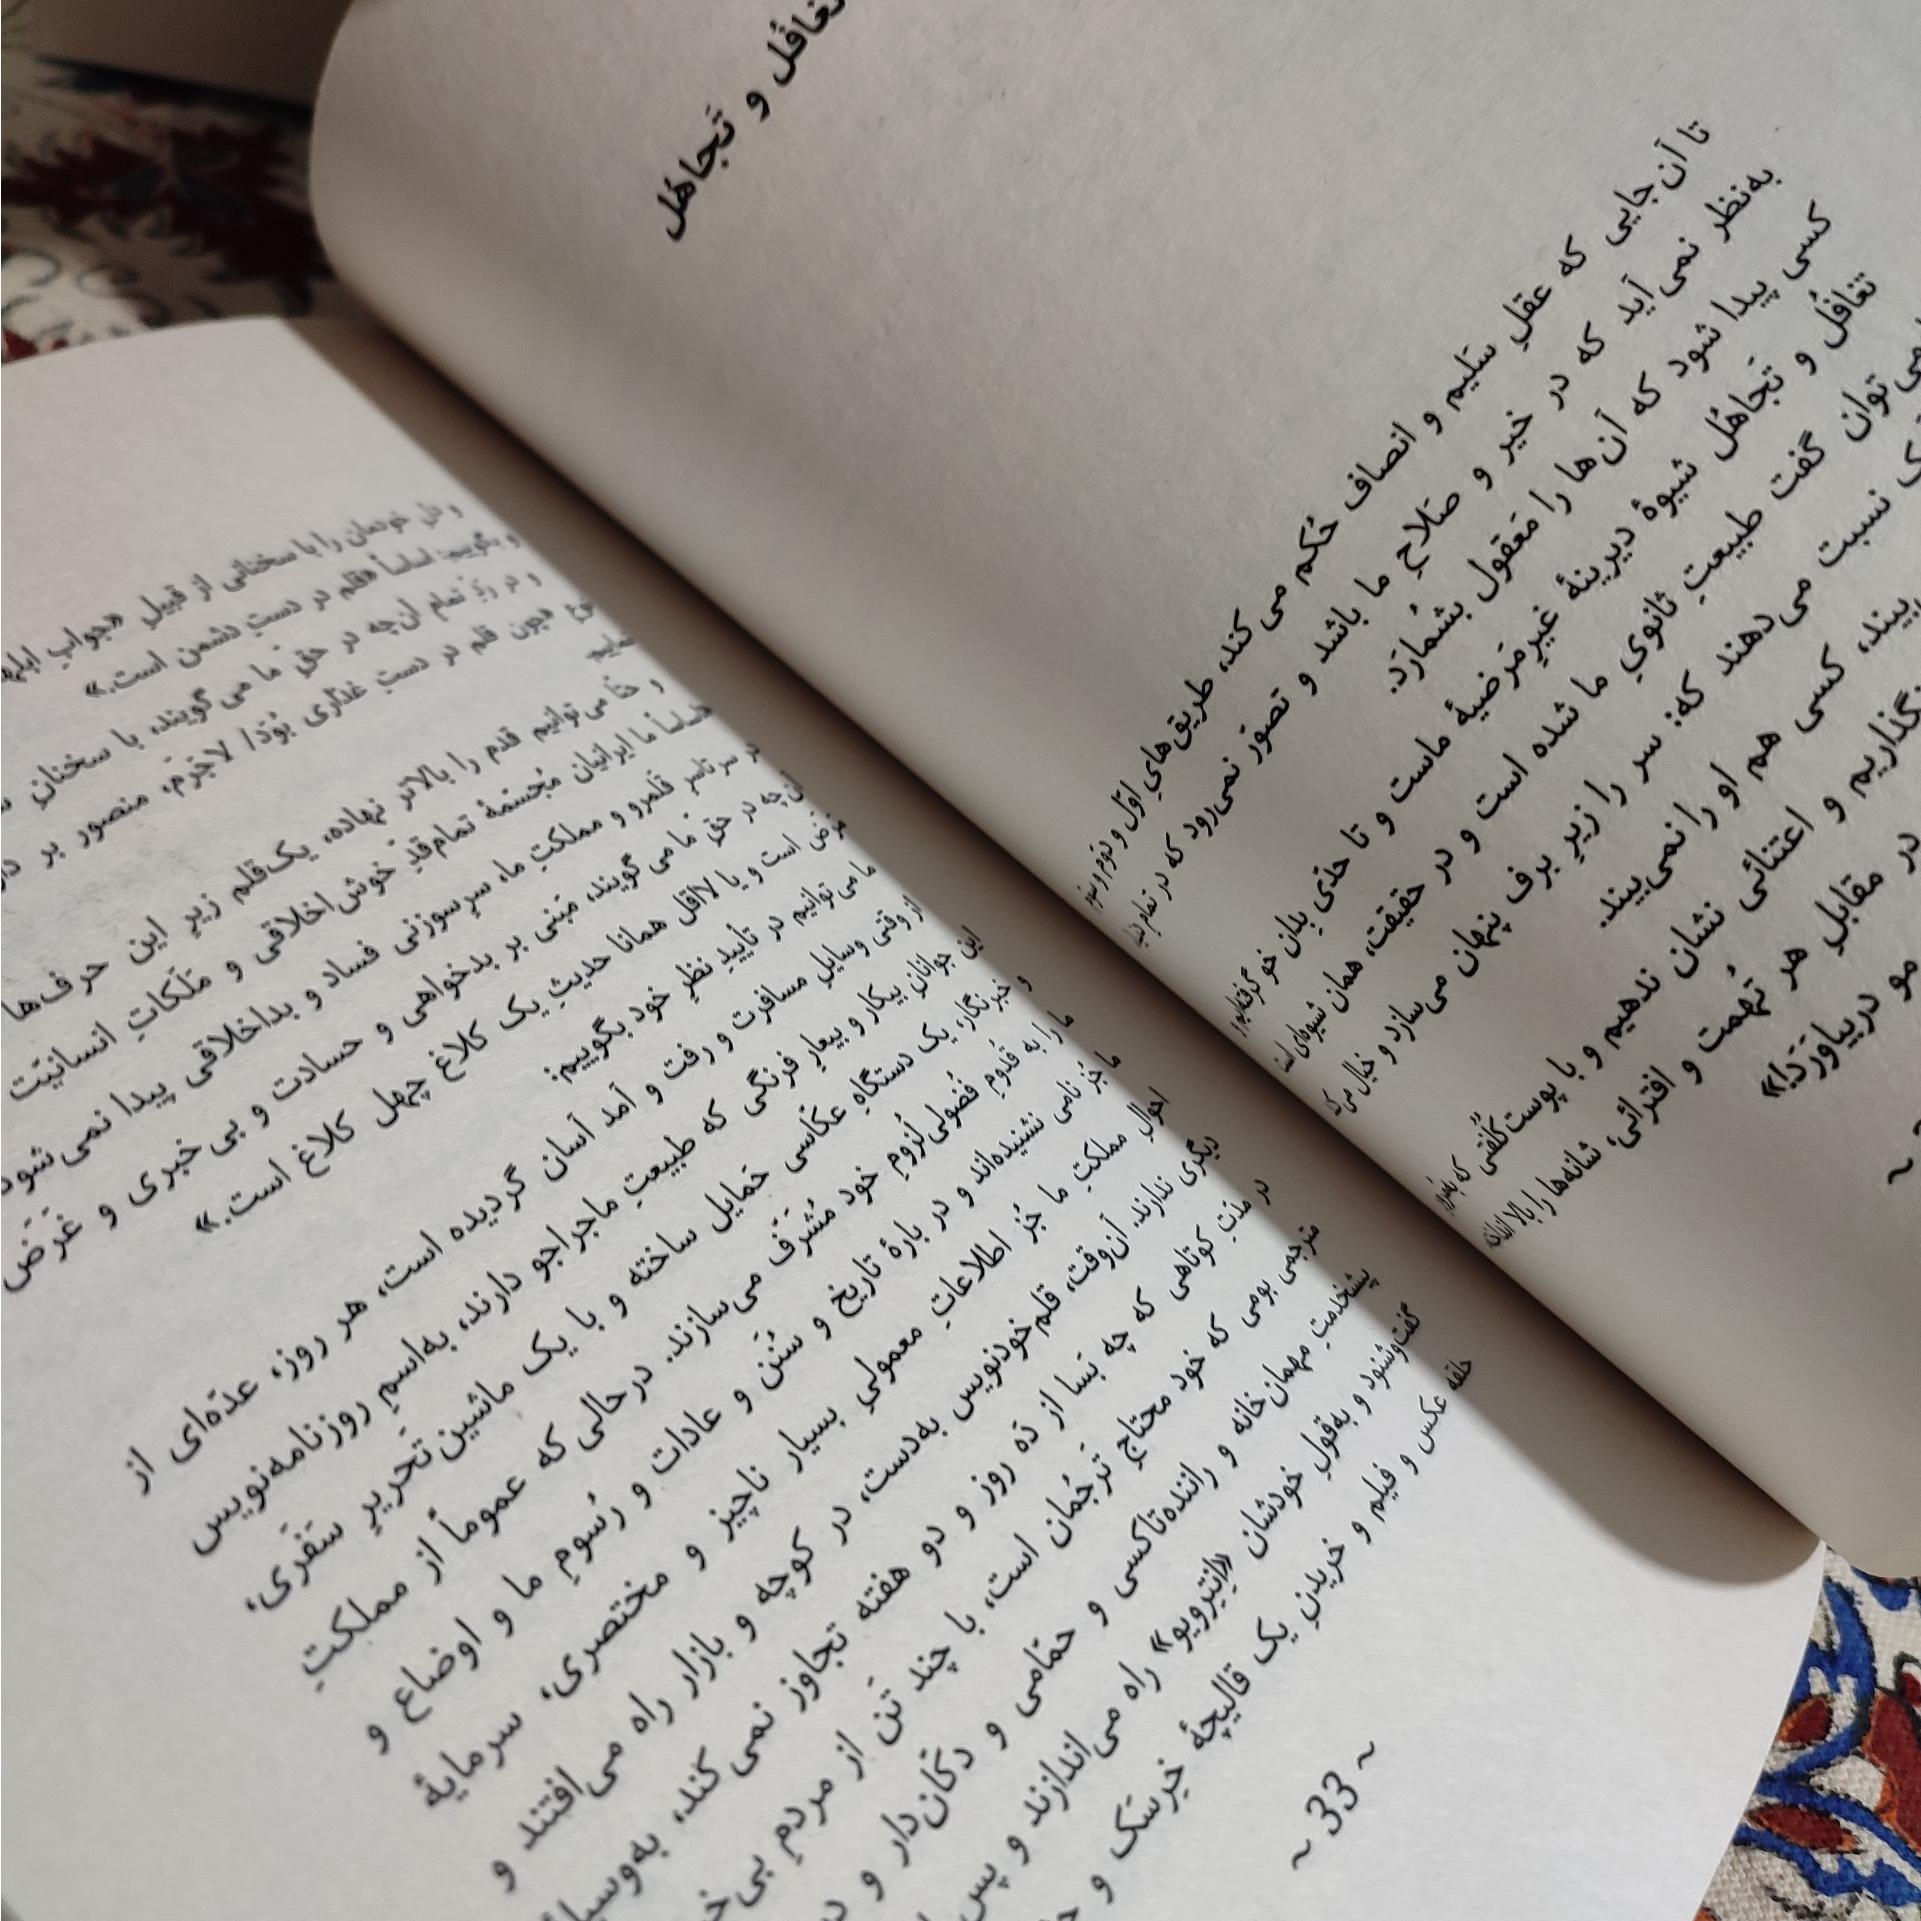 تغافُل و تَجاهُل
تا آن‌جایی که عقلِ سَلیم و انصاف حُکم می‌کند، طریق‌هایِ اوّل و دوم و سوم
به‌نظر نمی‌آید که در خیر و صَلاحِ ما باشد و تصوّر نمی‌رود که در تمام دنیا
کسی پیدا شود که آن‌ها را مَعقول بشُمارَد.
تَغافُل و تَجاهُل شیوهٔ دیرینهٔ غیرِمَرضیهٔ ماست و تا حدّی بِدان خو گرفته‌ایم
می‌توان گفت طبیعتِ ثانویِ ما شده است و در حقیقت، همان شیوه‌ای است
نسبت می‌دهند که: سر را زیرِ برف پنهان می‌سازد و خیال می‌کند
بیند، کسی هم او را نمی‌بیند.
نگذاریم و اعتنائی نشان ندهیم و با پوست‌کُلُفتی که
در مقابلِ هر تُهمت و افترائی، شانه‌ها را بالا
مو دربیاوَرَد!»
و دلِ خودمان را با سخنانی از قبیلِ «جوابِ
و بگوییم: اساساً «قلم در دستِ دشمن است.»
و در رَدِّ تمام آن‌چه در حقِّ ما می‌گویند، با سخنانِ
چون قلم در دستِ غدّاری بُوَد/ لاجَرَم، منصور بر
و حتّا می‌توانیم قدم را بالاتر نهاده، یک‌قلم زیرِ این حرف‌ها
اساساً ما ایرانیان مُجَسّمهٔ تمام‌قدِ خوش‌اخلاقی و مَلَکاتِ انسانیّت
در سرتاسرِ قلمرو و مملکتِ ما، سرِسوزنی فساد و بداخلاقی پیدا نمی‌شود
آن‌چه در حقِّ ما می‌گویند، مَبنی بر بدخواهی و حسادت و بی‌خبری و غَرَض
است و یا لااقل همانا حدیثِ یک کلاغ چهل کلاغ است.»
ما می‌توانیم در تأییدِ نظرِ خود بگوییم:
از وقتی وسایلِ مسافرت و رفت و آمد آسان گردیده است، هر روز، عدّه‌ای از
این جوانانِ بیکار و بیعارِ فرنگی که طبیعتِ ماجراجو دارند، به‌اسمِ روزنامه‌نویس
و خبرنگار، یک دستگاهِ عکّاسی حَمایل ساخته و با یک ماشینِ تَحریرِ سَفَری،
ما را به قُدومِ فُضولی‌لُزومِ خود مُشَرّف می‌سازند. درحالی که عموماً از مملکتِ
ما جُز نامی نشنیده‌اند و در بارهٔ تاریخ و سُنَن و عادات و رُسومِ ما و اوضاع و
احوالِ مملکتِ ما جُز اطلاعاتِ معمولیِ بسیار ناچیز و مختصری، سرمایهٔ
دیگری ندارند. آن‌وقت، قلم‌خودنویس به‌دست، در کوچه و بازار راه می‌افتند و
در مدّتِ کوتاهی که چه بَسا از دَه روز و دو هفته تجاوز نمی‌کند، به‌وسیلهٔ
مترجمی بومی که خود محتاجِ تَرجُمان است، با چند تَن از مردمِ
پیشخدمتِ مهمان‌خانه و راننده‌تاکسی و حمّامی و دکّان‌دار و
گفت‌وشنود و به‌قولِ خودشان «اِنتِرویو» راه می‌اندازند و پس
حلقه عکس و فیلم و خریدنِ یک قالیچهٔ خِرسَک و
~ 33 ~